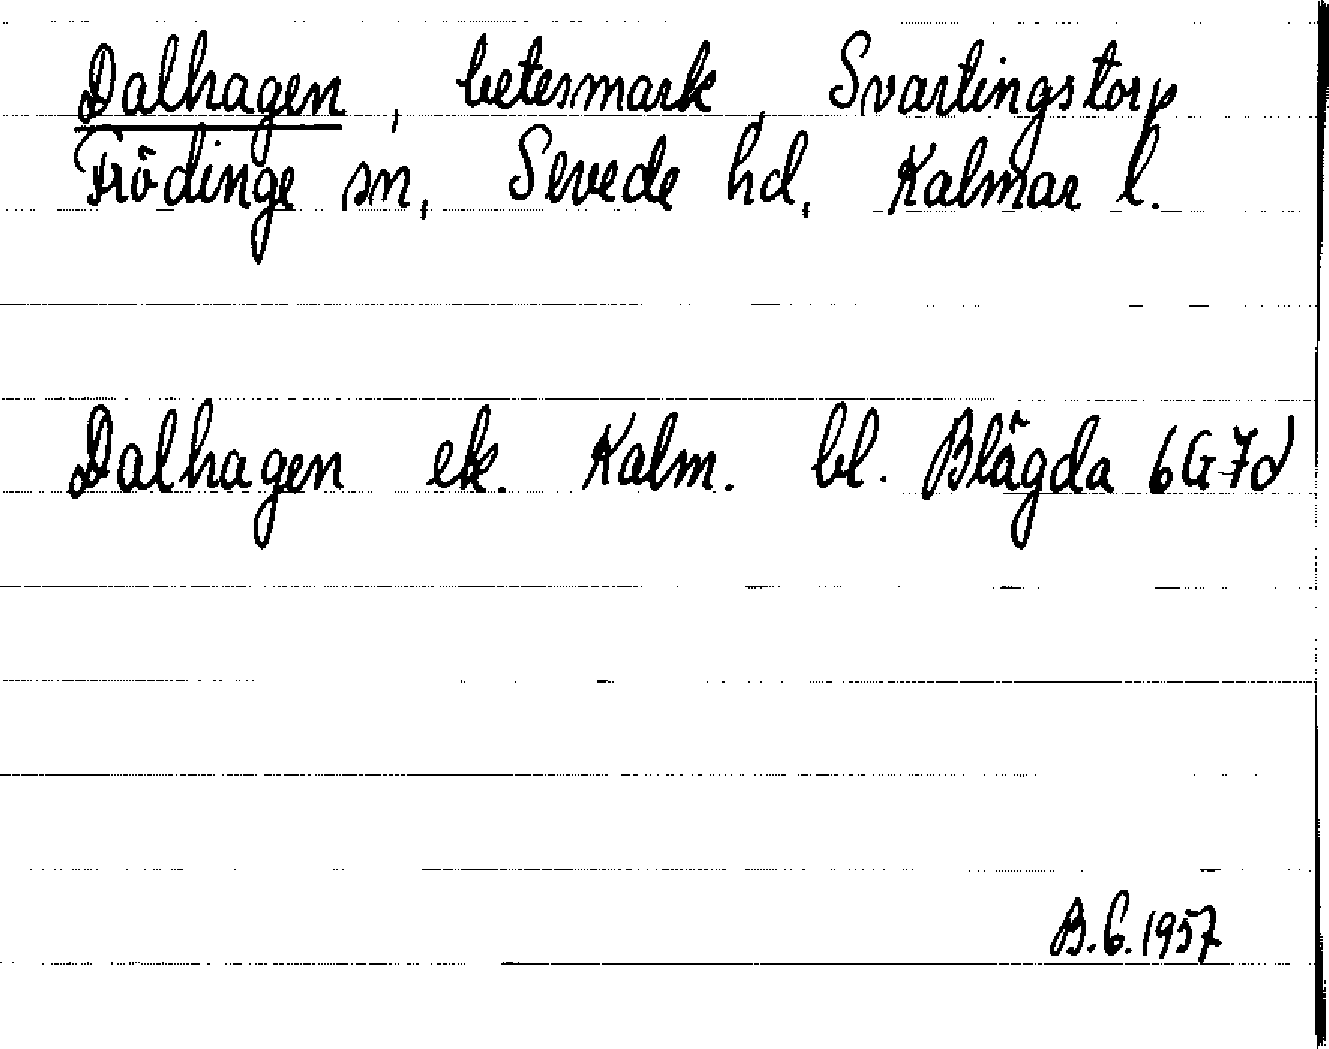 Dalhagen, betesmark, Svartingstorp
Frödinge sn, Sevede hd, Kalmar l.
Dalhagen ek. Kalm. bl. Blågda 6G7d
B.G.1957